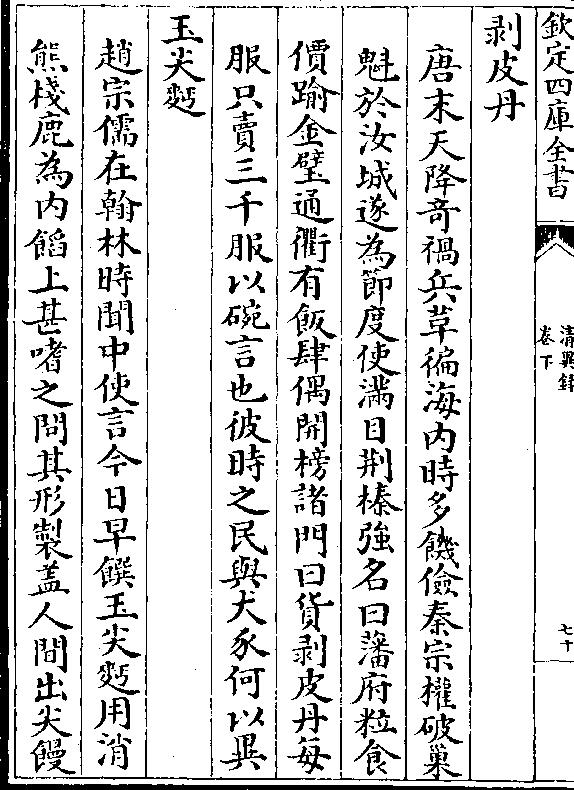 欽定四庫全書
清異錄
卷下
七十
剥皮丹
唐末天降竒禍兵草徧海内時多饑儉秦宗權破巢
魁於汝城遂為節度使滿目荆榛強名曰藩府粒食
價踰金璧通衢有飯肆偶開榜諸門曰貨剥皮丹每
服只賣三千服以碗言也彼時之民與犬豕何以異
玉尖麪
趙宗儒在翰林時聞中使言今日早饌玉尖麪用消
熊棧鹿為内餡上甚嗜之問其形製盖人間出尖饅